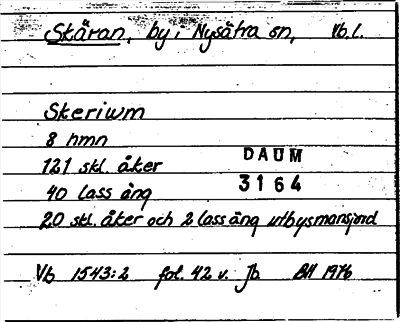 Skäran, by i Nysätra sn, Vb.l.
Skeriwm
8 hmn
121 skl. åker
DAUM
40 lass äng
3164
20 skl. åker och 2 lass äng utbysmansjord
Vb 1543:2 fol. 42 v. Jb. BH 1976